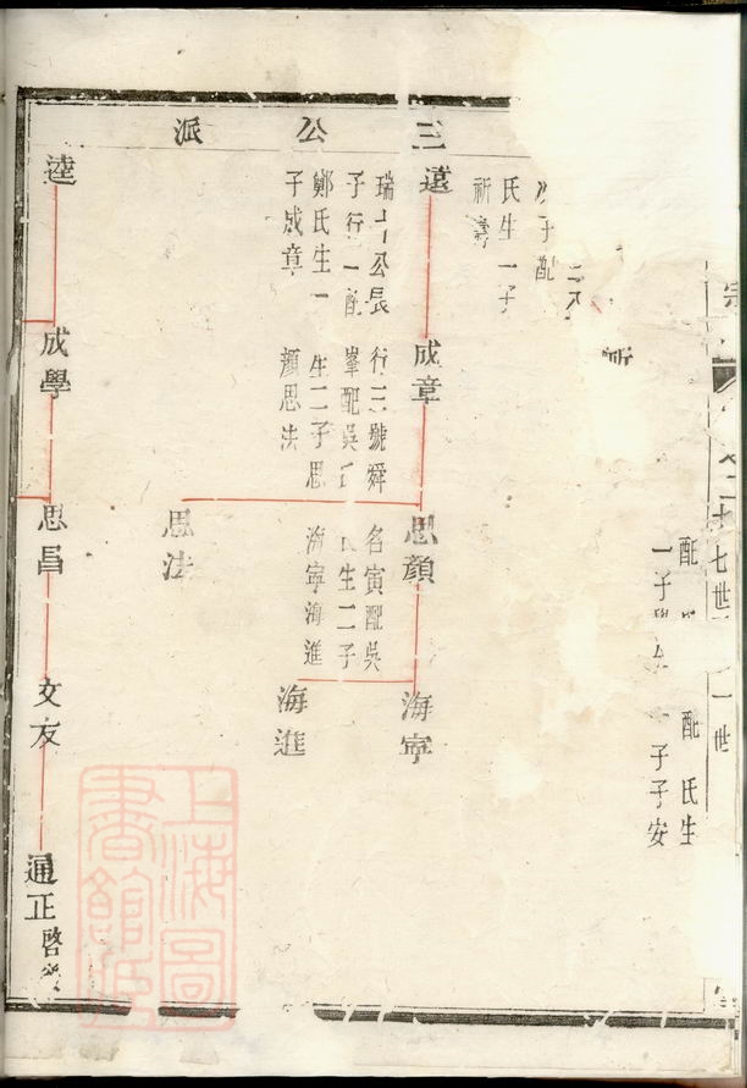 三公派
配
一子
配 氏生
子子安
七世
一世
子配
氏生一子
祈壽
遠
瑞 公長
子行一配
鄭氏生一
子成章
成章
行三號舜
峯配吳氏
生二子思
顏思法
思顏
名寅配吳
氏生二子
海寧海進
海寧
海進
思法
逵
成學
思昌
文友
通正
啓
上海圖書館藏